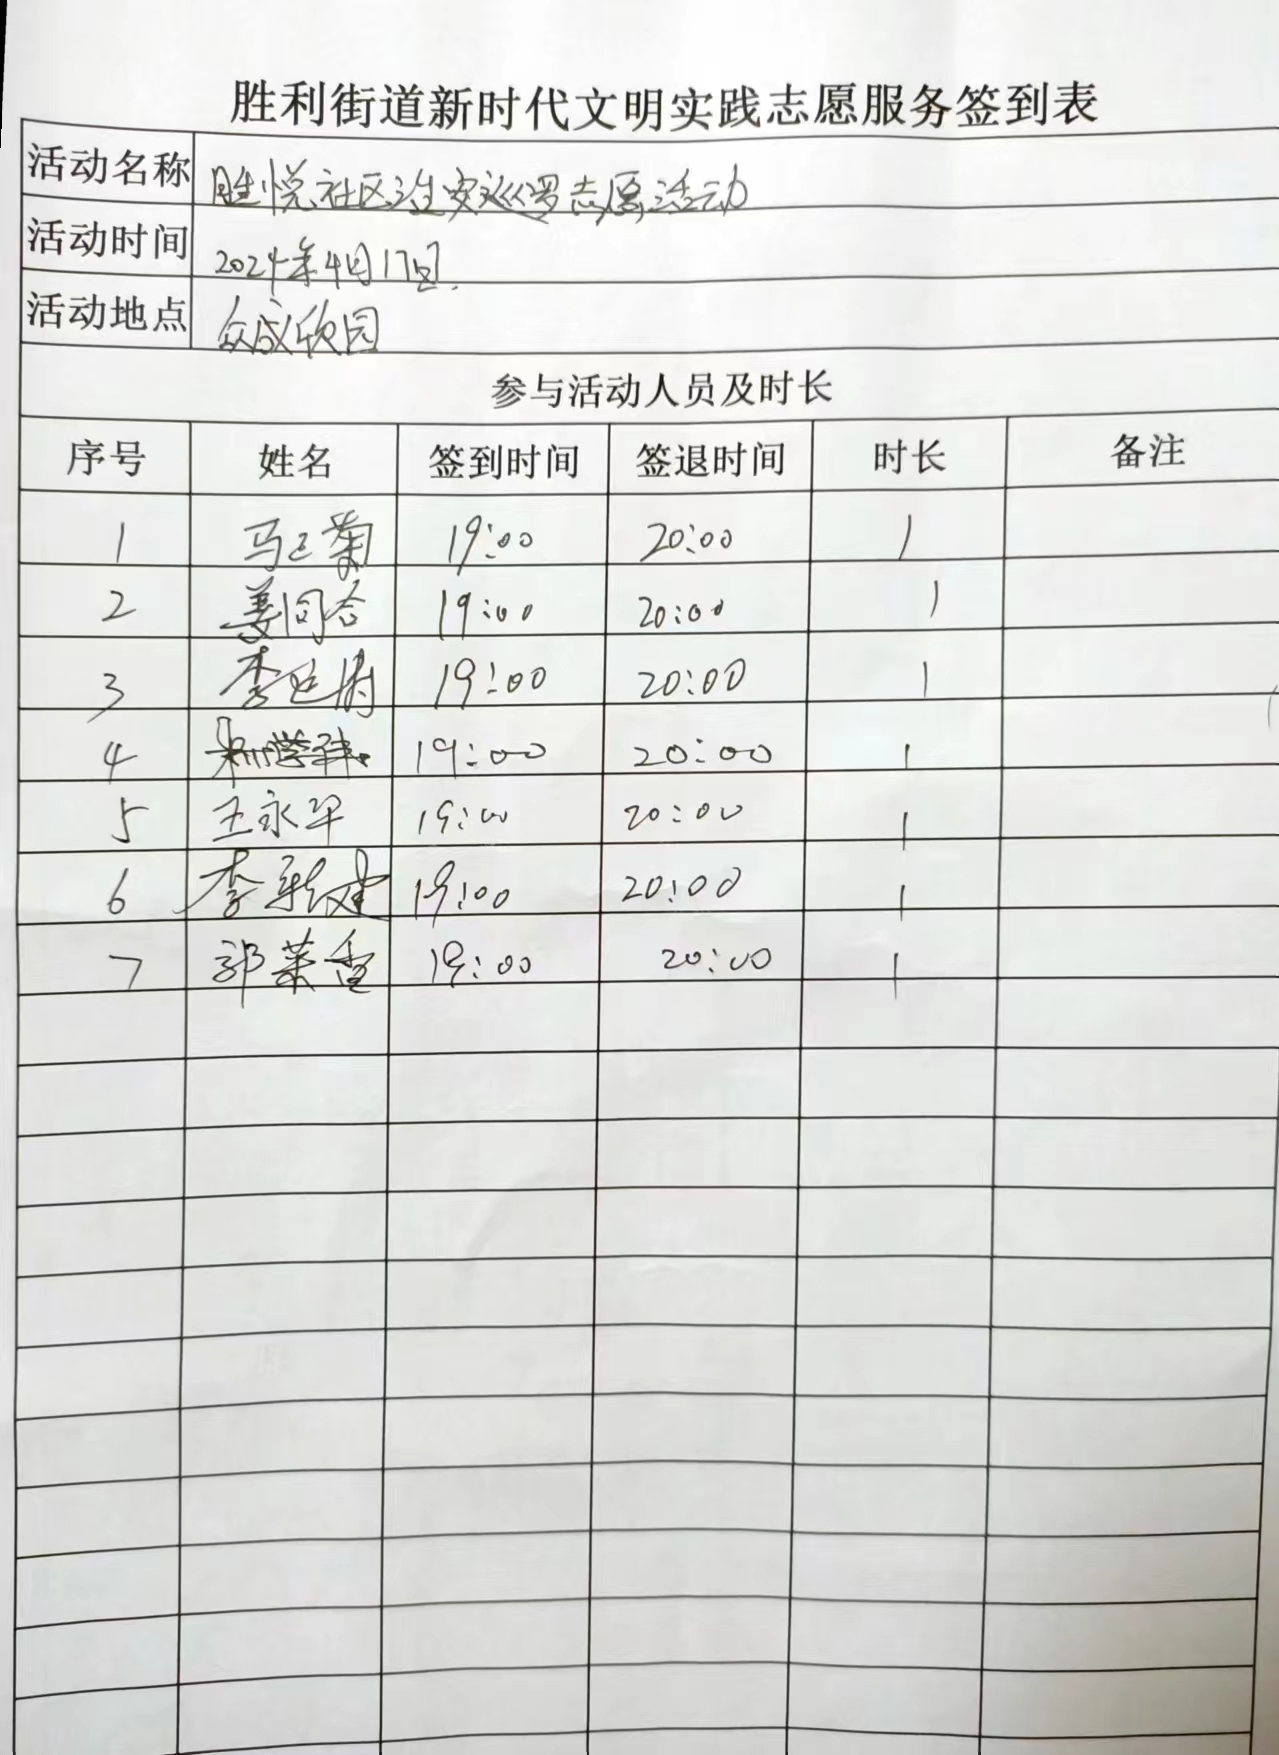 胜利街道新时代文明实践志愿服务签到表
活动名称 胜悦社区治安巡逻志愿活动
活动时间 2024年4月17日.
活动地点 众成欣园
参与活动人员及时长
序号 姓名 签到时间 签退时间 时长 备注
1 19:00 20:00 1
2 姜同合 19:00 20:00 1
3 19:00 20:00 1
4 19:00 20:00 1
5 王永平 19:00 20:00 1
6 李新建 19:00 20:00 1
7 郭荣香 19:00 20:00 1